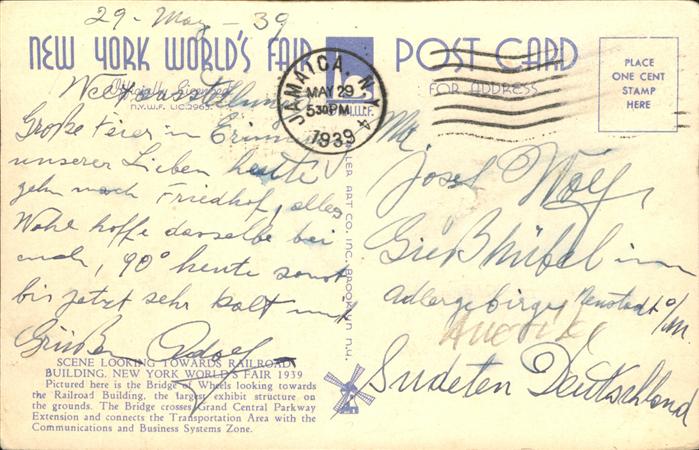 29 - May - 39
NEW YORK WORLD'S FAIR
Weltausstellung
Officially Licensed
N.Y.W.F. LIC. 2965
Große Feier in
unserer Lieben heute
gehn nach Friedhof, alles
Wohl hoffe dasselbe bei
euch, 90° heute sonst
bis jetzt sehr kalt mit
Grüßen Adolf
SCENE LOOKING TOWARDS RAILROAD
BUILDING, NEW YORK WORLD'S FAIR 1939
Pictured here is the Bridge of Wheels looking towards
the Railroad Building, the largest exhibit structure on
the grounds. The Bridge crosses Grand Central Parkway
Extension and connects the Transportation Area with the
Communications and Business Systems Zone.
JAMAICA, N.Y. 4
MAY 29
5 30 PM
1939
N.Y.W.F.
ART CO. INC. BROOKLYN N.Y.
POST CARD
FOR ADDRESS
PLACE
ONE CENT
STAMP
HERE
Mr
Josef Wolf
Gießhübel im
Adlergebirge Neustadt o/M.
Sudeten Deutschland